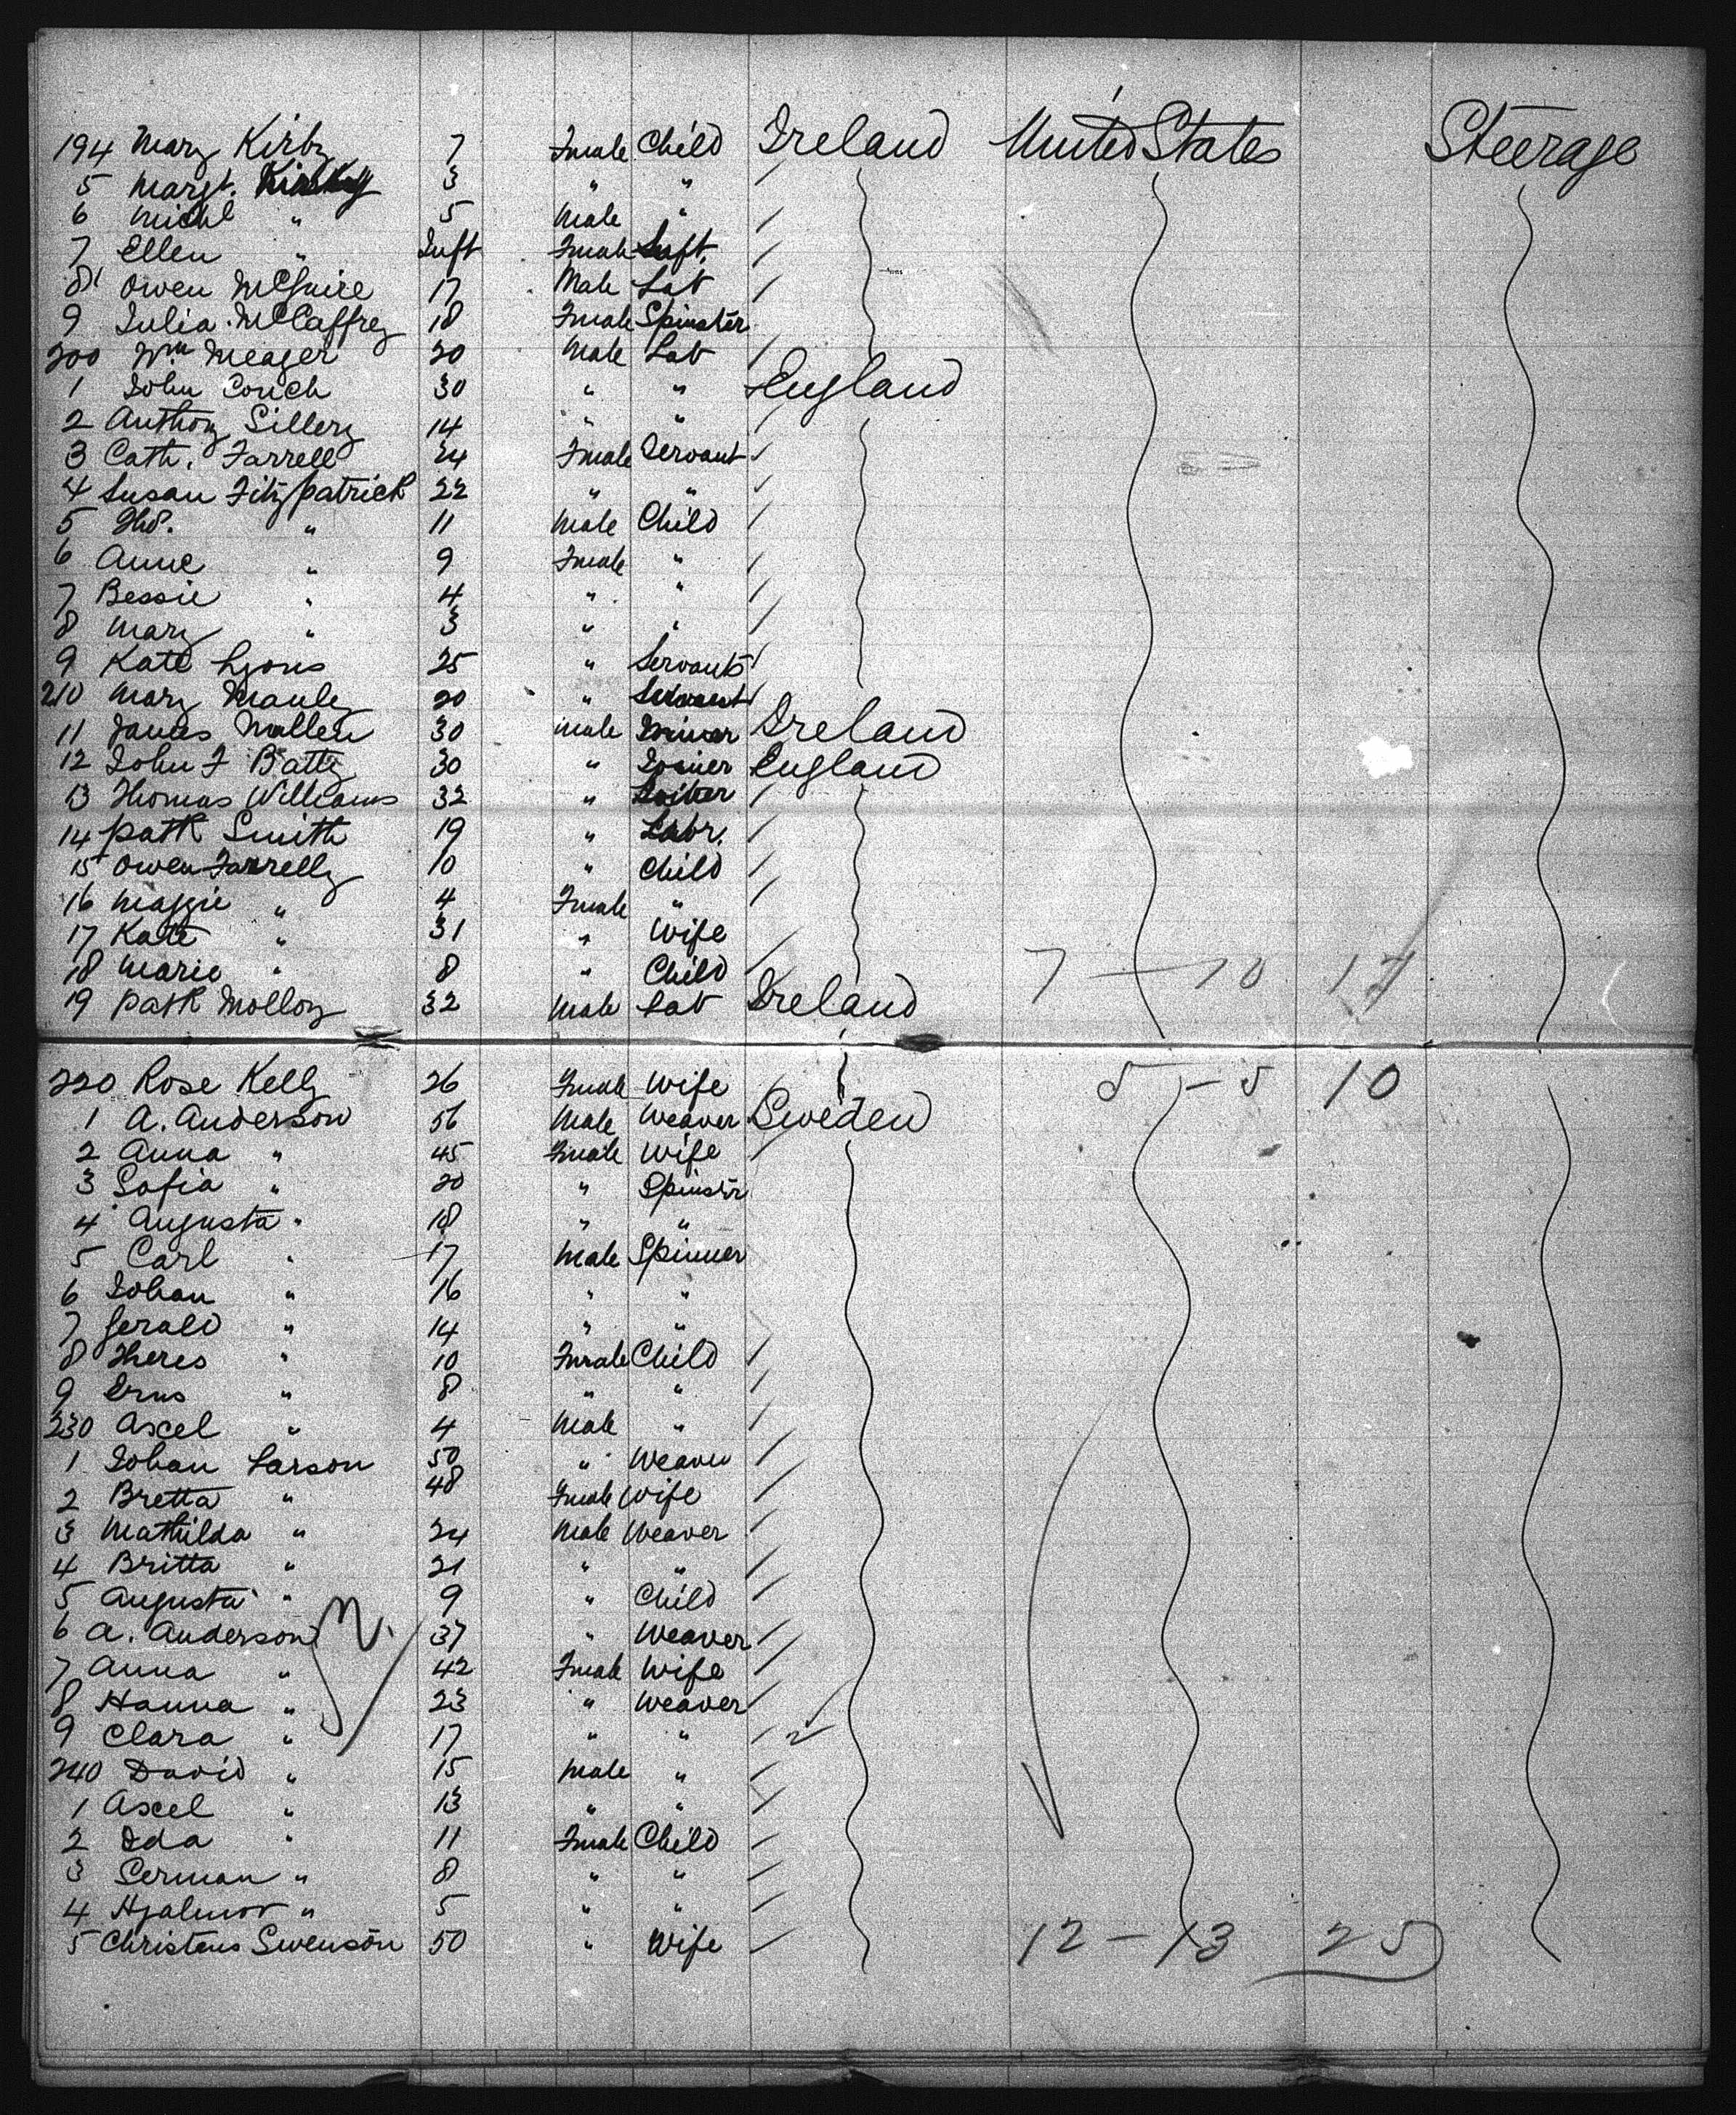 194 Mary Kirby 7 Fmale Child Ireland United States Steerage
5 Margt. Kirby 3 " "
6 Michl " 5 Male "
7 Ellen " Inft Fmale Inft.
8 Owen McGuire 17 Male Lab
9 Julia McCaffrey 18 Fmale Spinster
200 Wm Meager 20 Male Lab
1 John Couch 30 " " England
2 Anthony Sillery 14 " "
3 Cath. Farrell 24 Fmale Servant
4 Susan Fitzpatrick 22 " "
5 Thos. " 11 Male Child
6 Anne " 9 Fmale "
7 Bessie " 4 " "
8 Mary " 3 " "
9 Kate Lyons 25 " Servant
210 Mary Manley 20 " Servant
11 James Mullen 30 Male Ireland
12 John F Batty 30 " Joiner England
13 Thomas Williams 32 "
14 Patk Smith 19 " Labr.
15 Owen Farrelly 10 " Child
16 Maggie " 4 Fmale "
17 Kate " 31 " Wife
18 Marie " 8 " Child 7 — 10 17
19 Patk Molloy 32 Male Lab Ireland
220 Rose Kelly 26 Fmale Wife 5 - 5 10
1 A. Anderson 56 Male Weaver Sweden
2 Anna " 45 Fmale Wife
3 Sofia " 20 " Spinstr
4 Augusta " 18 " "
5 Carl " 17 Male Spinner
6 Johan " 16 " "
7 Gerald " 14 " "
8 Theres " 10 Fmale Child
9 Erns " 8 " "
230 Axcel " 4 Male "
1 Johan Larson 50 " Weaver
2 Bretta " 48 Fmale Wife
3 Mathilda " 24 Male Weaver
4 Britta " 21 " "
5 Augusta " 9 " Child
6 A. Anderson 37 " Weaver
7 Anna " 42 Fmale Wife
8 Hanna " 23 " Weaver
9 Clara " 17 " "
240 David " 15 Male "
1 Axel " 13 " "
2 Ida " 11 Fmale Child
3 Serman " 8 " "
4 Hjalmor " 5 " "
5 Christens Swenson 50 " Wife 12 — 13 25